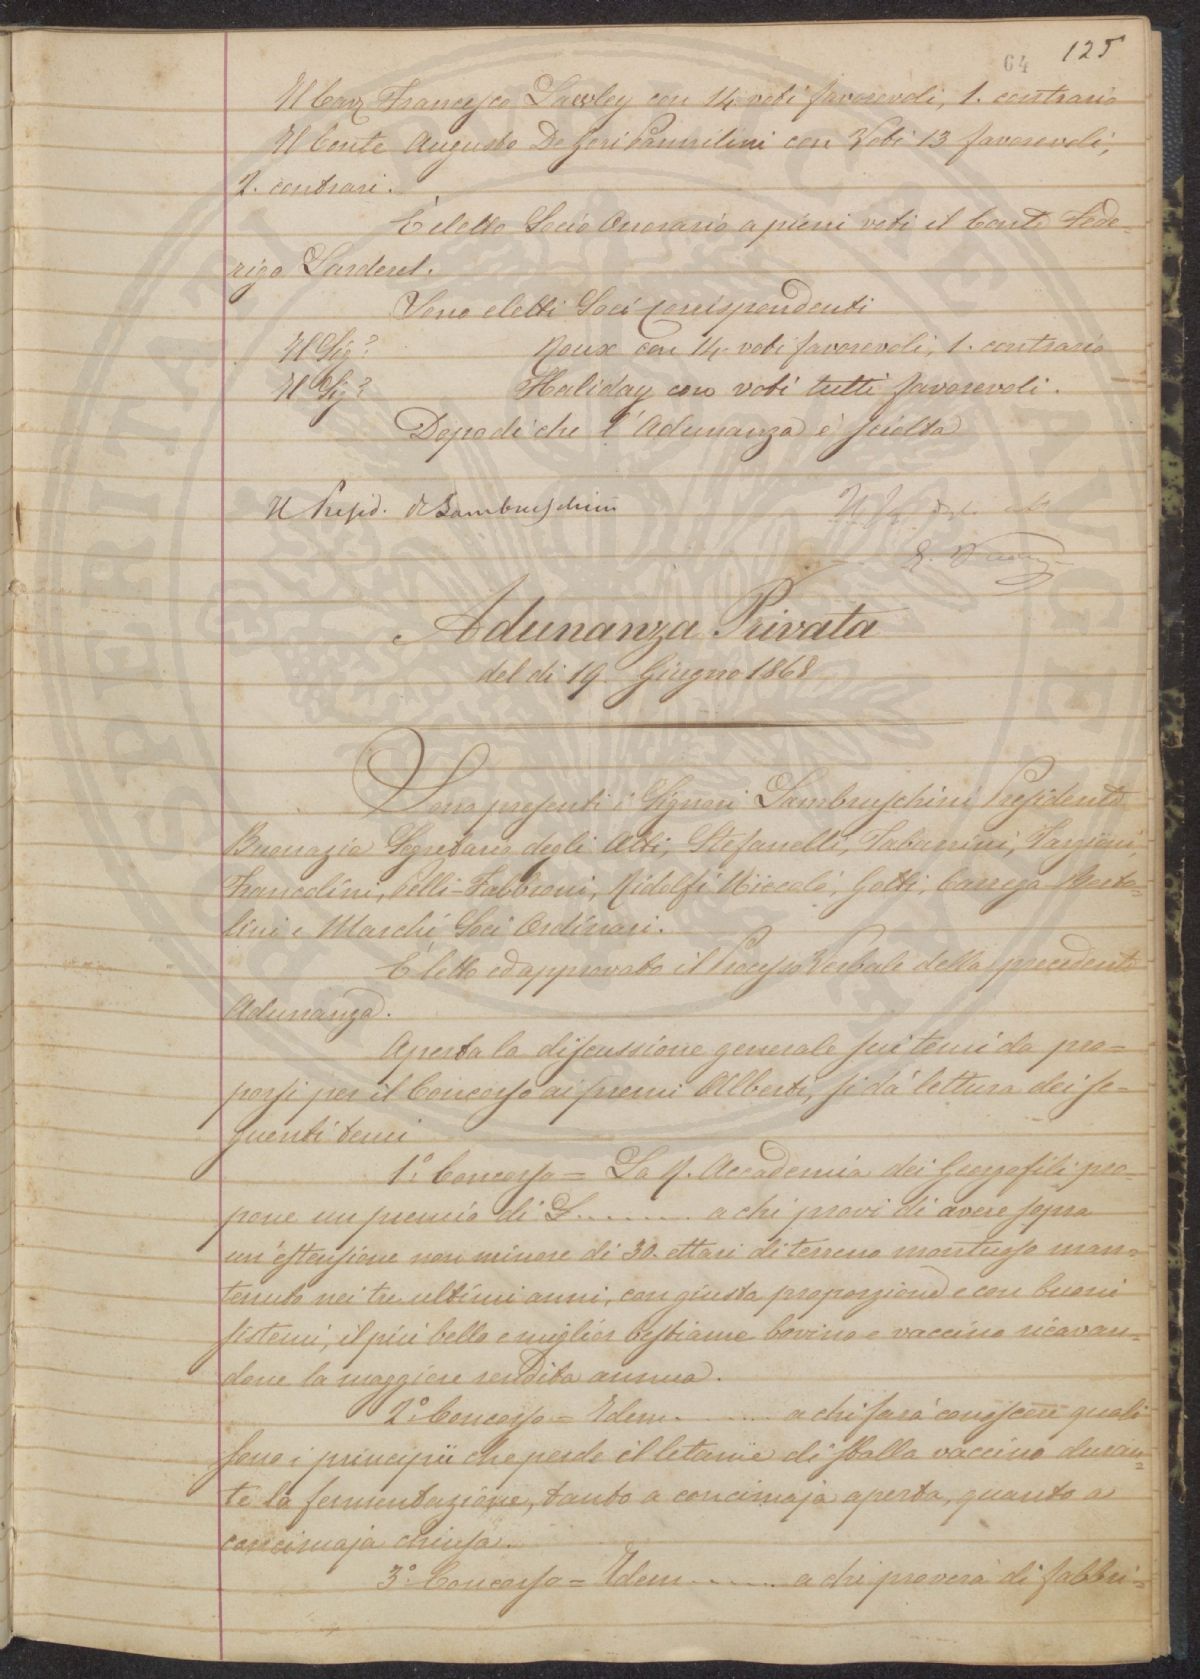 64 125
Il Cav. Francesco Lawley con 14 voti favorevoli, 1. contrario
Il Conte Augusto De Gori Pannilini con Voti 13 favorevoli,
2. contrari.
È eletto Socio Onorario a pieni voti il Conte Fede-
rigo Larderel.
Sono eletti Soci corrispondenti
Il Sig.r Roux con 14. voti favorevoli, 1. contrario
Il Sig.r Haliday con voti tutti favorevoli.
Dopo di che l'Adunanza è sciolta
Il Presid. R Lambruschini Il degli Atti
Adunanza Privata
del dì 19. Giugno 1868
Sono presenti i Signori Lambruschini Presidente
Buonazia Segretario degli Atti, Stefanelli, Tabarrini,
Francolini, Pelli-Fabbroni, Ridolfi Niccolò, Gotti, Carega Berto-
lini e Marchi Soci Ordinari.
È letto ed approvato il Processo Verbale della precedente
Adunanza.
Aperta la discussione generale sui temi da pro=
porsi per il Concorso ai premi Alberti, si dà lettura dei se=
guenti temi
1.° Concorso = La R. Accademia dei Georgofili pro-
pone un premio di L......... a chi provi di avere sopra
un'estensione non minore di 30. ettari di terreno montuoso man=
tenuto nei tre ultimi anni, con giusta proporzione e con buoni
sistemi, il più bello e miglior bestiame bovino e vaccino ricavan=
done la maggiore rendita annua.
2.° Concorso = Idem. ....... a chi farà conoscere quali
sono i principii che perde il letame di stalla vaccino duran=
te la fermentazione, tanto a concimaja aperta, quanto a
concimaja chiusa.
3.° Concorso = Idem ........ a chi proverà di fabbri=